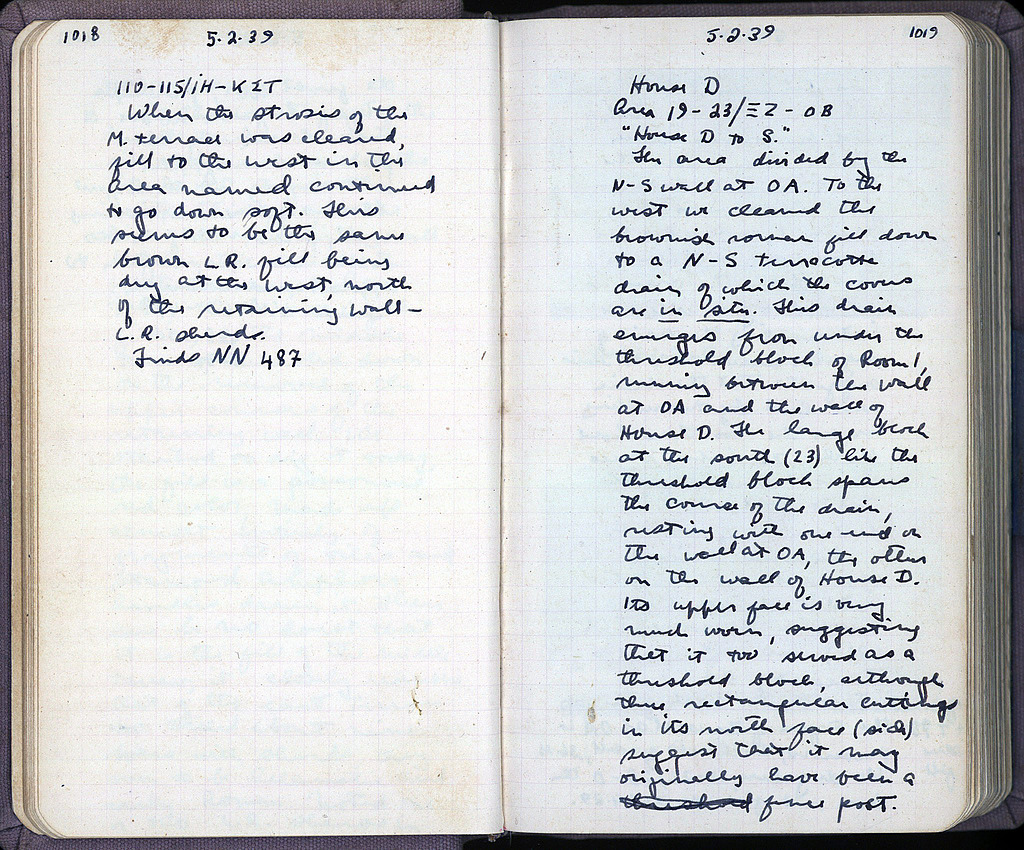 1018
5.2.39
110-115/ΙΗ-ΚΣΤ
When the strosis of the
M. terrace was cleared,
fill to the west in the
area named continued
to go down soft. This
seems to be the same
brown L.R. fill being
dug at the west, north
of the retaining wall –
L.R. sherds.
Finds NN 487
5.2.39
1019
House D
Area 19-23/ΞΖ-ΟΒ
"House D to S."
The area divided by the
N-S wall at ΟΑ. To the
west we cleared the
brownish roman fill down
to a N-S terracotta
drain of which the covers
are in situ. This drain
emerges from under the
threshold block of Room 1,
running between the wall
at ΟΑ and the wall of
House D. The large block
at the south (23) like the
threshold block spans
the course of the drain,
resting with one end on
the wall at ΟΑ, the other
on the wall of House D.
Its upper face is very
much worn, suggesting
that it too served as a
threshold block, although
three rectangular cuttings
in its north face (side)
suggest that it may
originally have been a
threshold fence post.